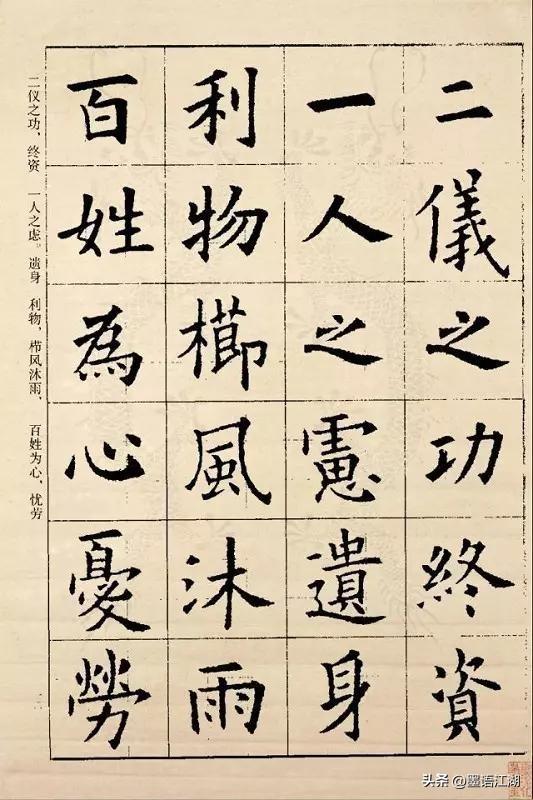 二儀之功終資
一人之慮遺身
利物櫛風沐雨
百姓為心憂勞
二仪之功，终资　一人之虑。遗身　利物，栉风沐雨，　百姓为心，忧劳
头条 @墨语江湖